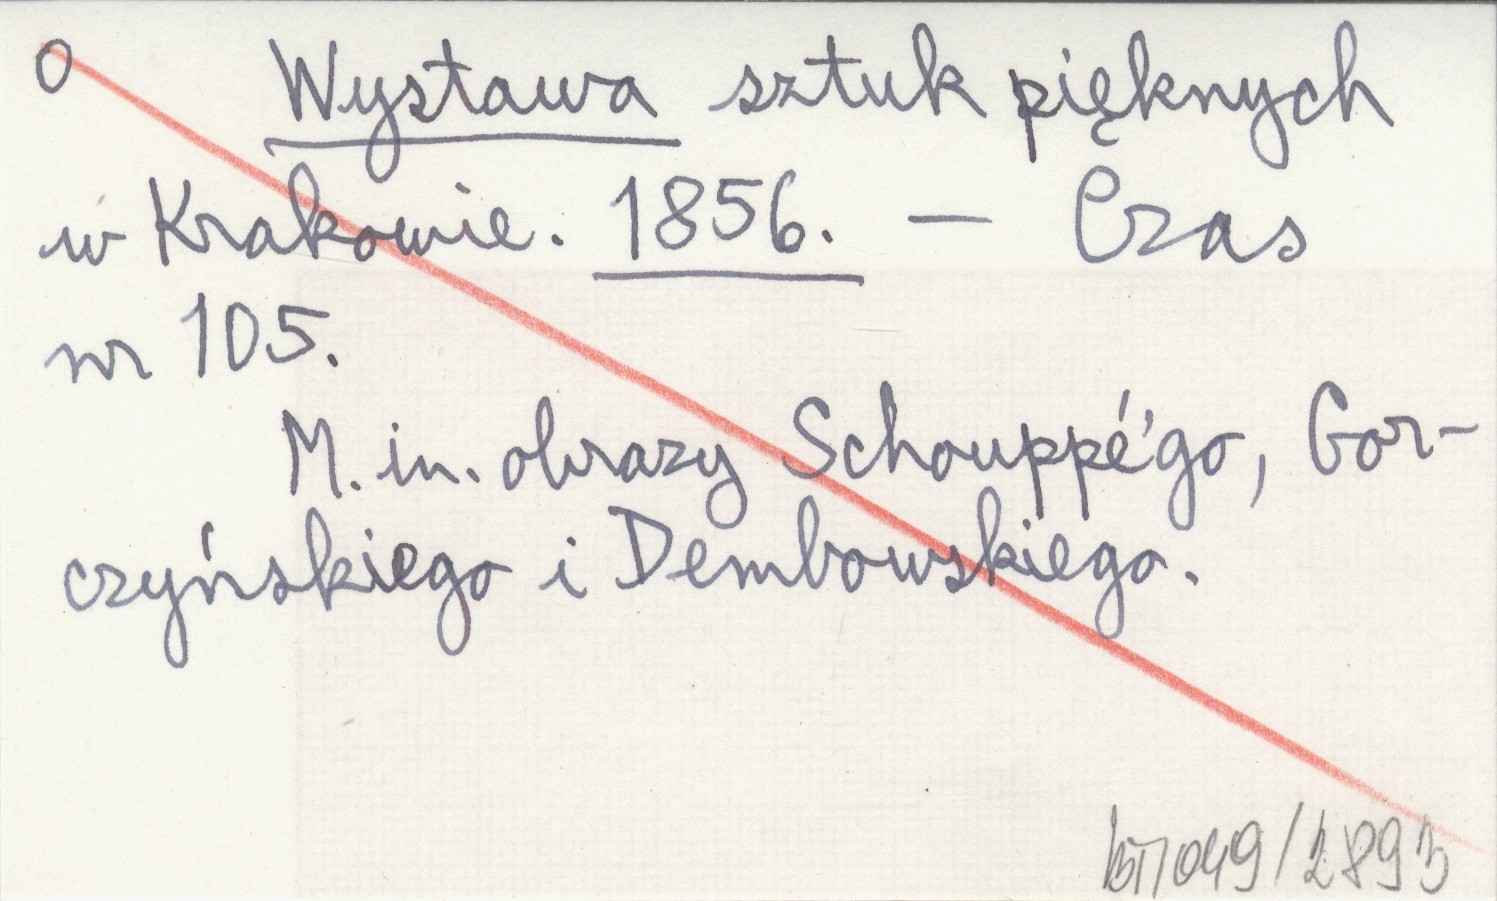 O Wystawa sztuk pięknych
w Krakowie. 1856. — Czas
nr 105.
M. in. obrazy Schouppé'go, Gor-
czyńskiego i Dembowskiego.
049/2893